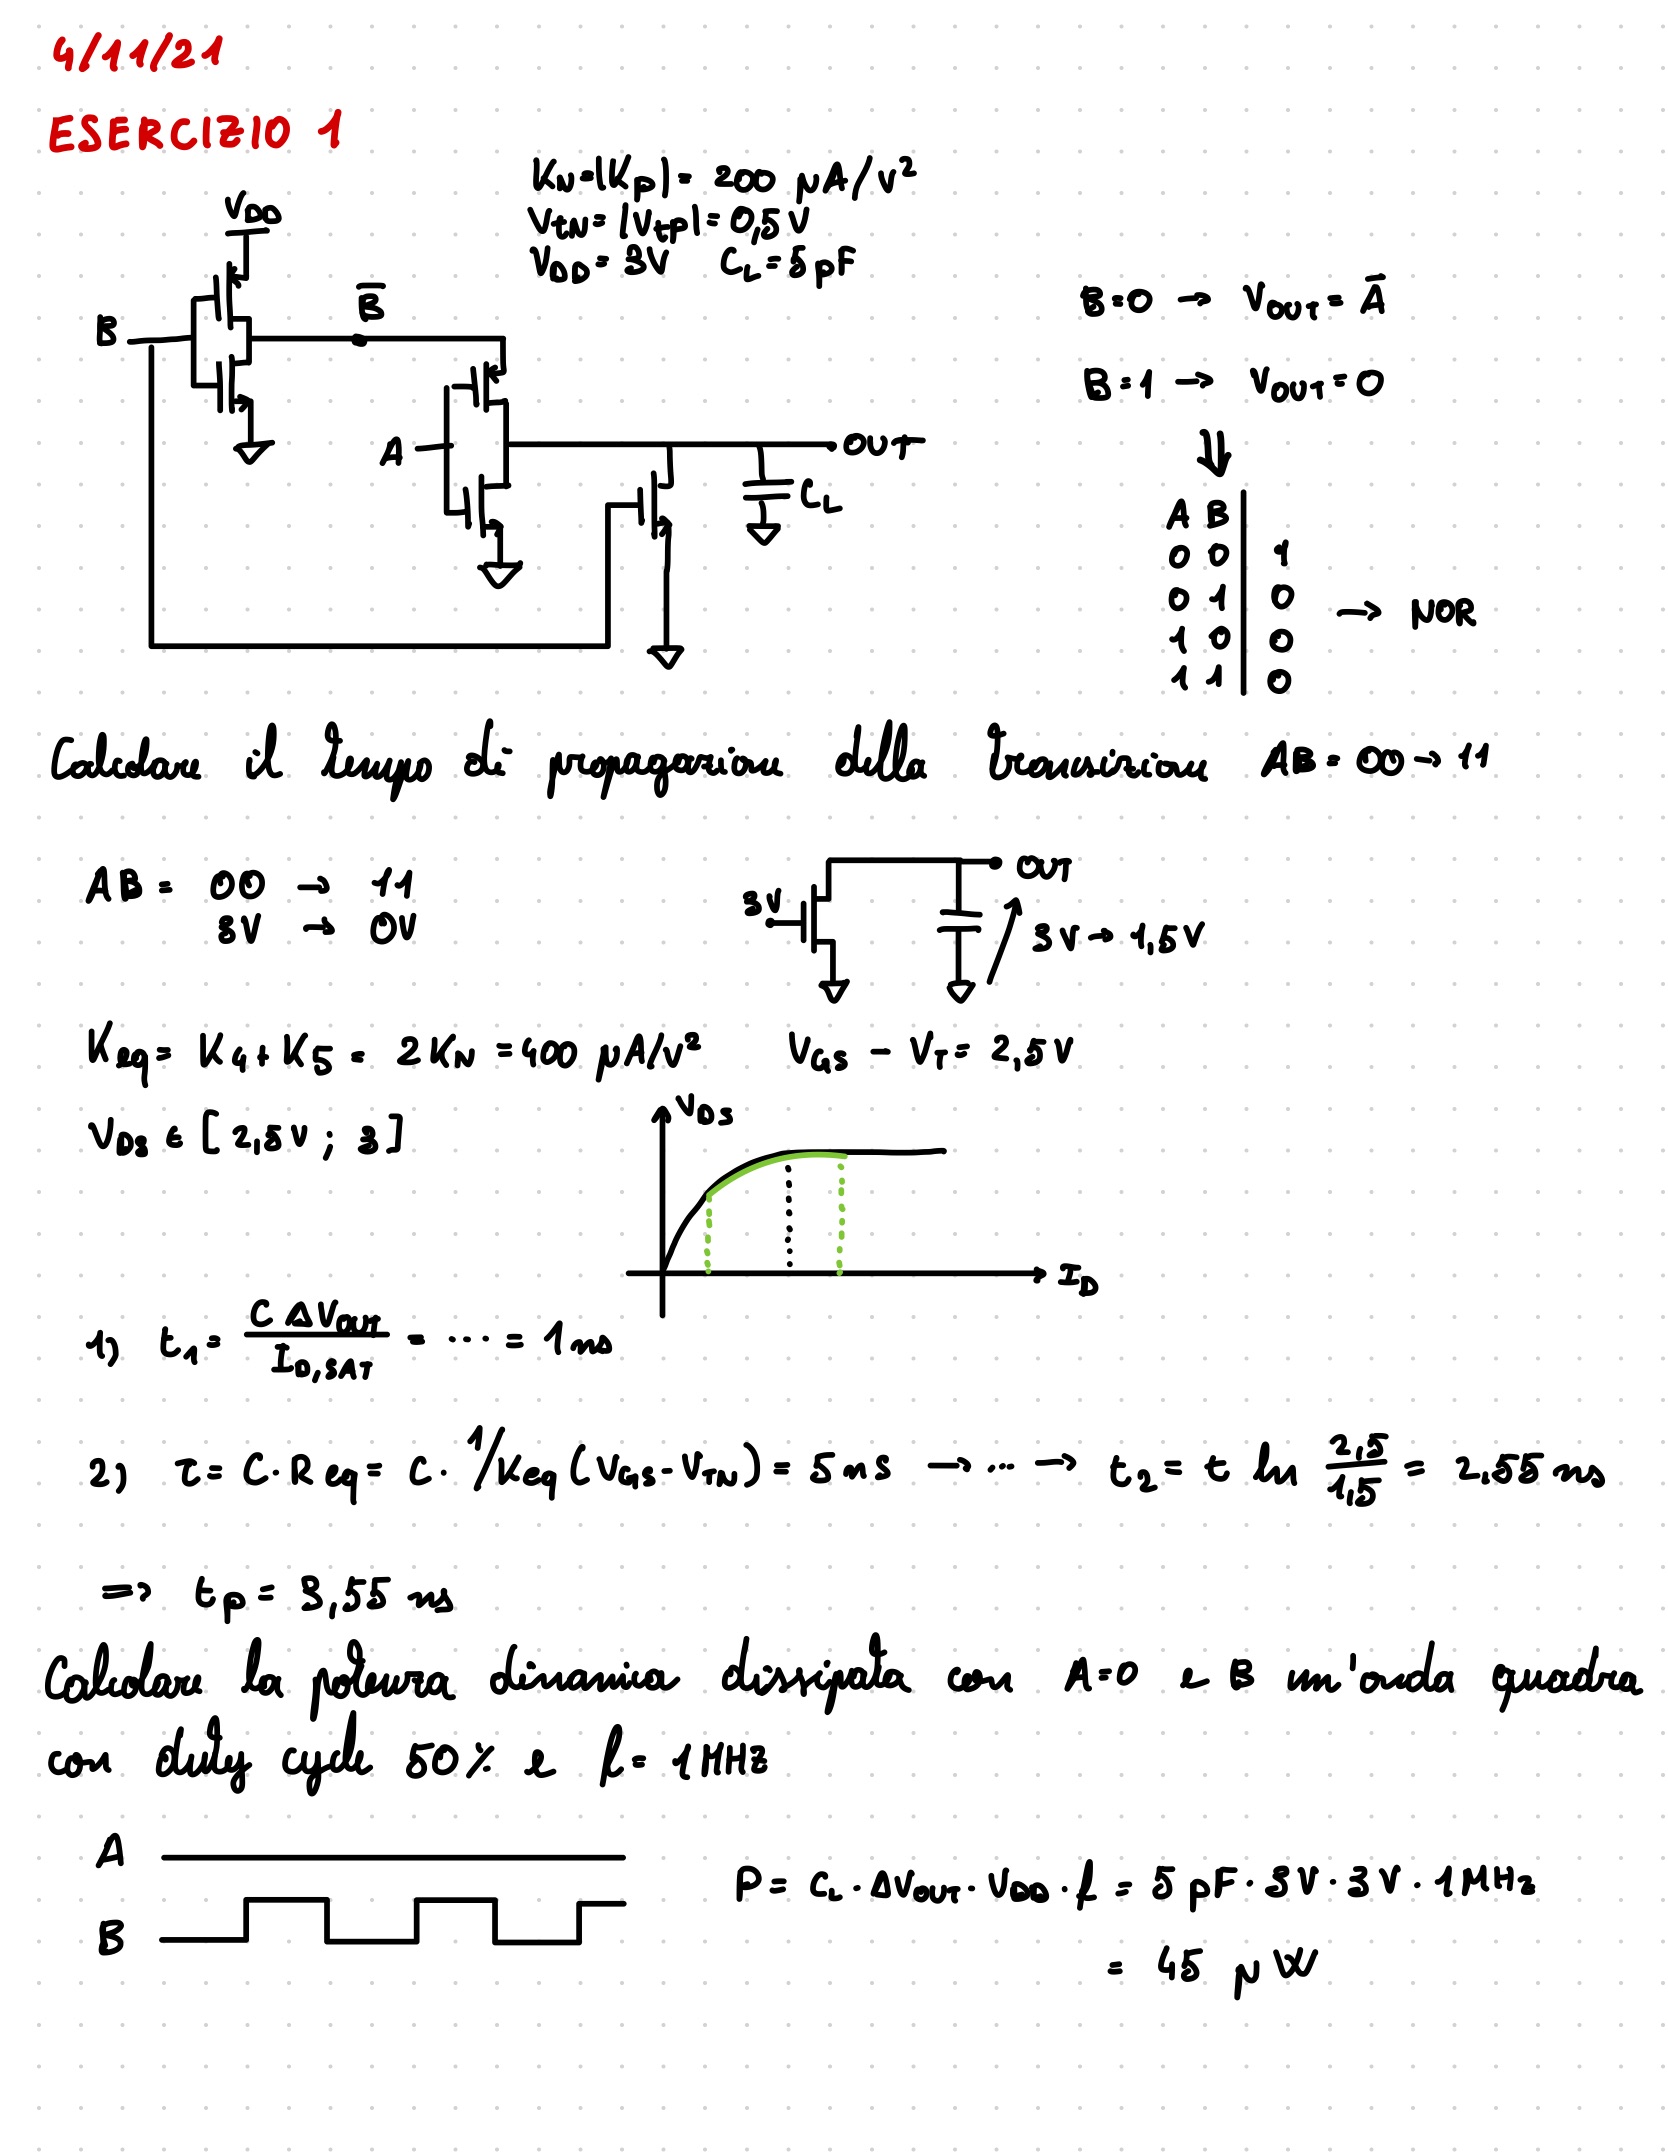 4/11/21
ESERCIZIO 1
KN=|Kp|= 200 µA/V²
VtN=|Vtp|=0,5V
VDD=3V CL=5pF
VDD
B
B̅
A
OUT
CL
B=0 → VOUT= A̅
B=1 → VOUT=0
⇓
A B
0 0 | 1
0 1 | 0
1 0 | 0
1 1 | 0
→ NOR
Calcolare il tempo di propagazione della transizione AB=00→11
AB = 00 → 11
3V → 0V
3V
OUT
3V→1,5V
Keq= K4+K5 = 2KN =400 µA/V² VGS - VT= 2,5V
VDS ∈ [2,5V ; 3]
VDS
ID
1) t1= C ΔVOUT / ID,SAT = ... = 1ns
2) τ= C·Req= C· 1/Keq(VGS-VTN) = 5ns → ... → t2= t ln 2,5/1,5 = 2,55 ns
=> tp= 3,55 ns
Calcolare la potenza dinamica dissipata con A=0 e B un'onda quadra
con duty cycle 50% e f= 1MHz
A
B
P= CL·ΔVOUT·VDD·f = 5pF·3V·3V·1MHz
= 45 µW